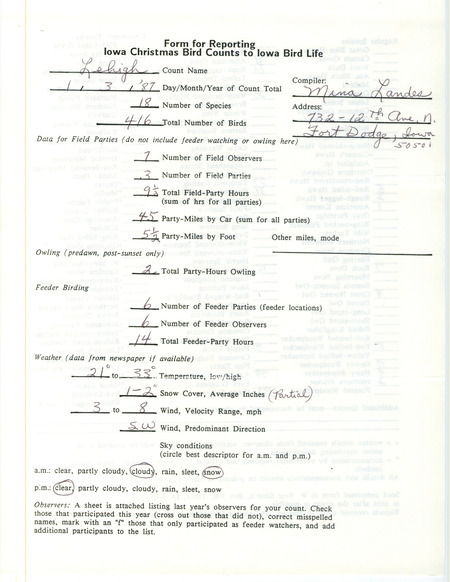 Form for Reporting
Iowa Christmas Bird Counts to Iowa Bird Life
Lehigh Count Name
1, 3, '87 Day/Month/Year of Count Total
Compiler:
Mina Landes
18 Number of Species
Address:
416 Total Number of Birds
732-12th Ave. N.
Fort Dodge, Iowa
50501
Data for Field Parties (do not include feeder watching or owling here)
7 Number of Field Observers
3 Number of Field Parties
9½ Total Field-Party Hours
(sum of hrs for all parties)
45 Party-Miles by Car (sum for all parties)
5½ Party-Miles by Foot Other miles, mode
Owling (predawn, post-sunset only)
2 Total Party-Hours Owling
Feeder Birding
6 Number of Feeder Parties (feeder locations)
6 Number of Feeder Observers
14 Total Feeder-Party Hours
Weather (data from newspaper if available)
21° to 33° Temperature, low/high
1-2" Snow Cover, Average Inches (Partial)
3 to 8 Wind, Velocity Range, mph
SW Wind, Predominant Direction
Sky conditions
(circle best descriptor for a.m. and p.m.)
a.m.: clear, partly cloudy, cloudy, rain, sleet, snow
p.m.: clear, partly cloudy, cloudy, rain, sleet, snow
Observers: A sheet is attached listing last year's observers for your count. Check
those that participated this year (cross out those that did not), correct misspelled
names, mark with an "f" those that only participated as feeder watchers, and add
additional participants to the list.